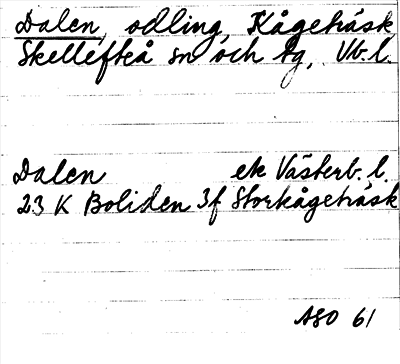 Dalen, odling, Kågeträsk,
Skellefteå sn och tg, Vb. l.
Dalen ek Västerb. l.
23 K Boliden 3f Storkågeträsk
ASO 61